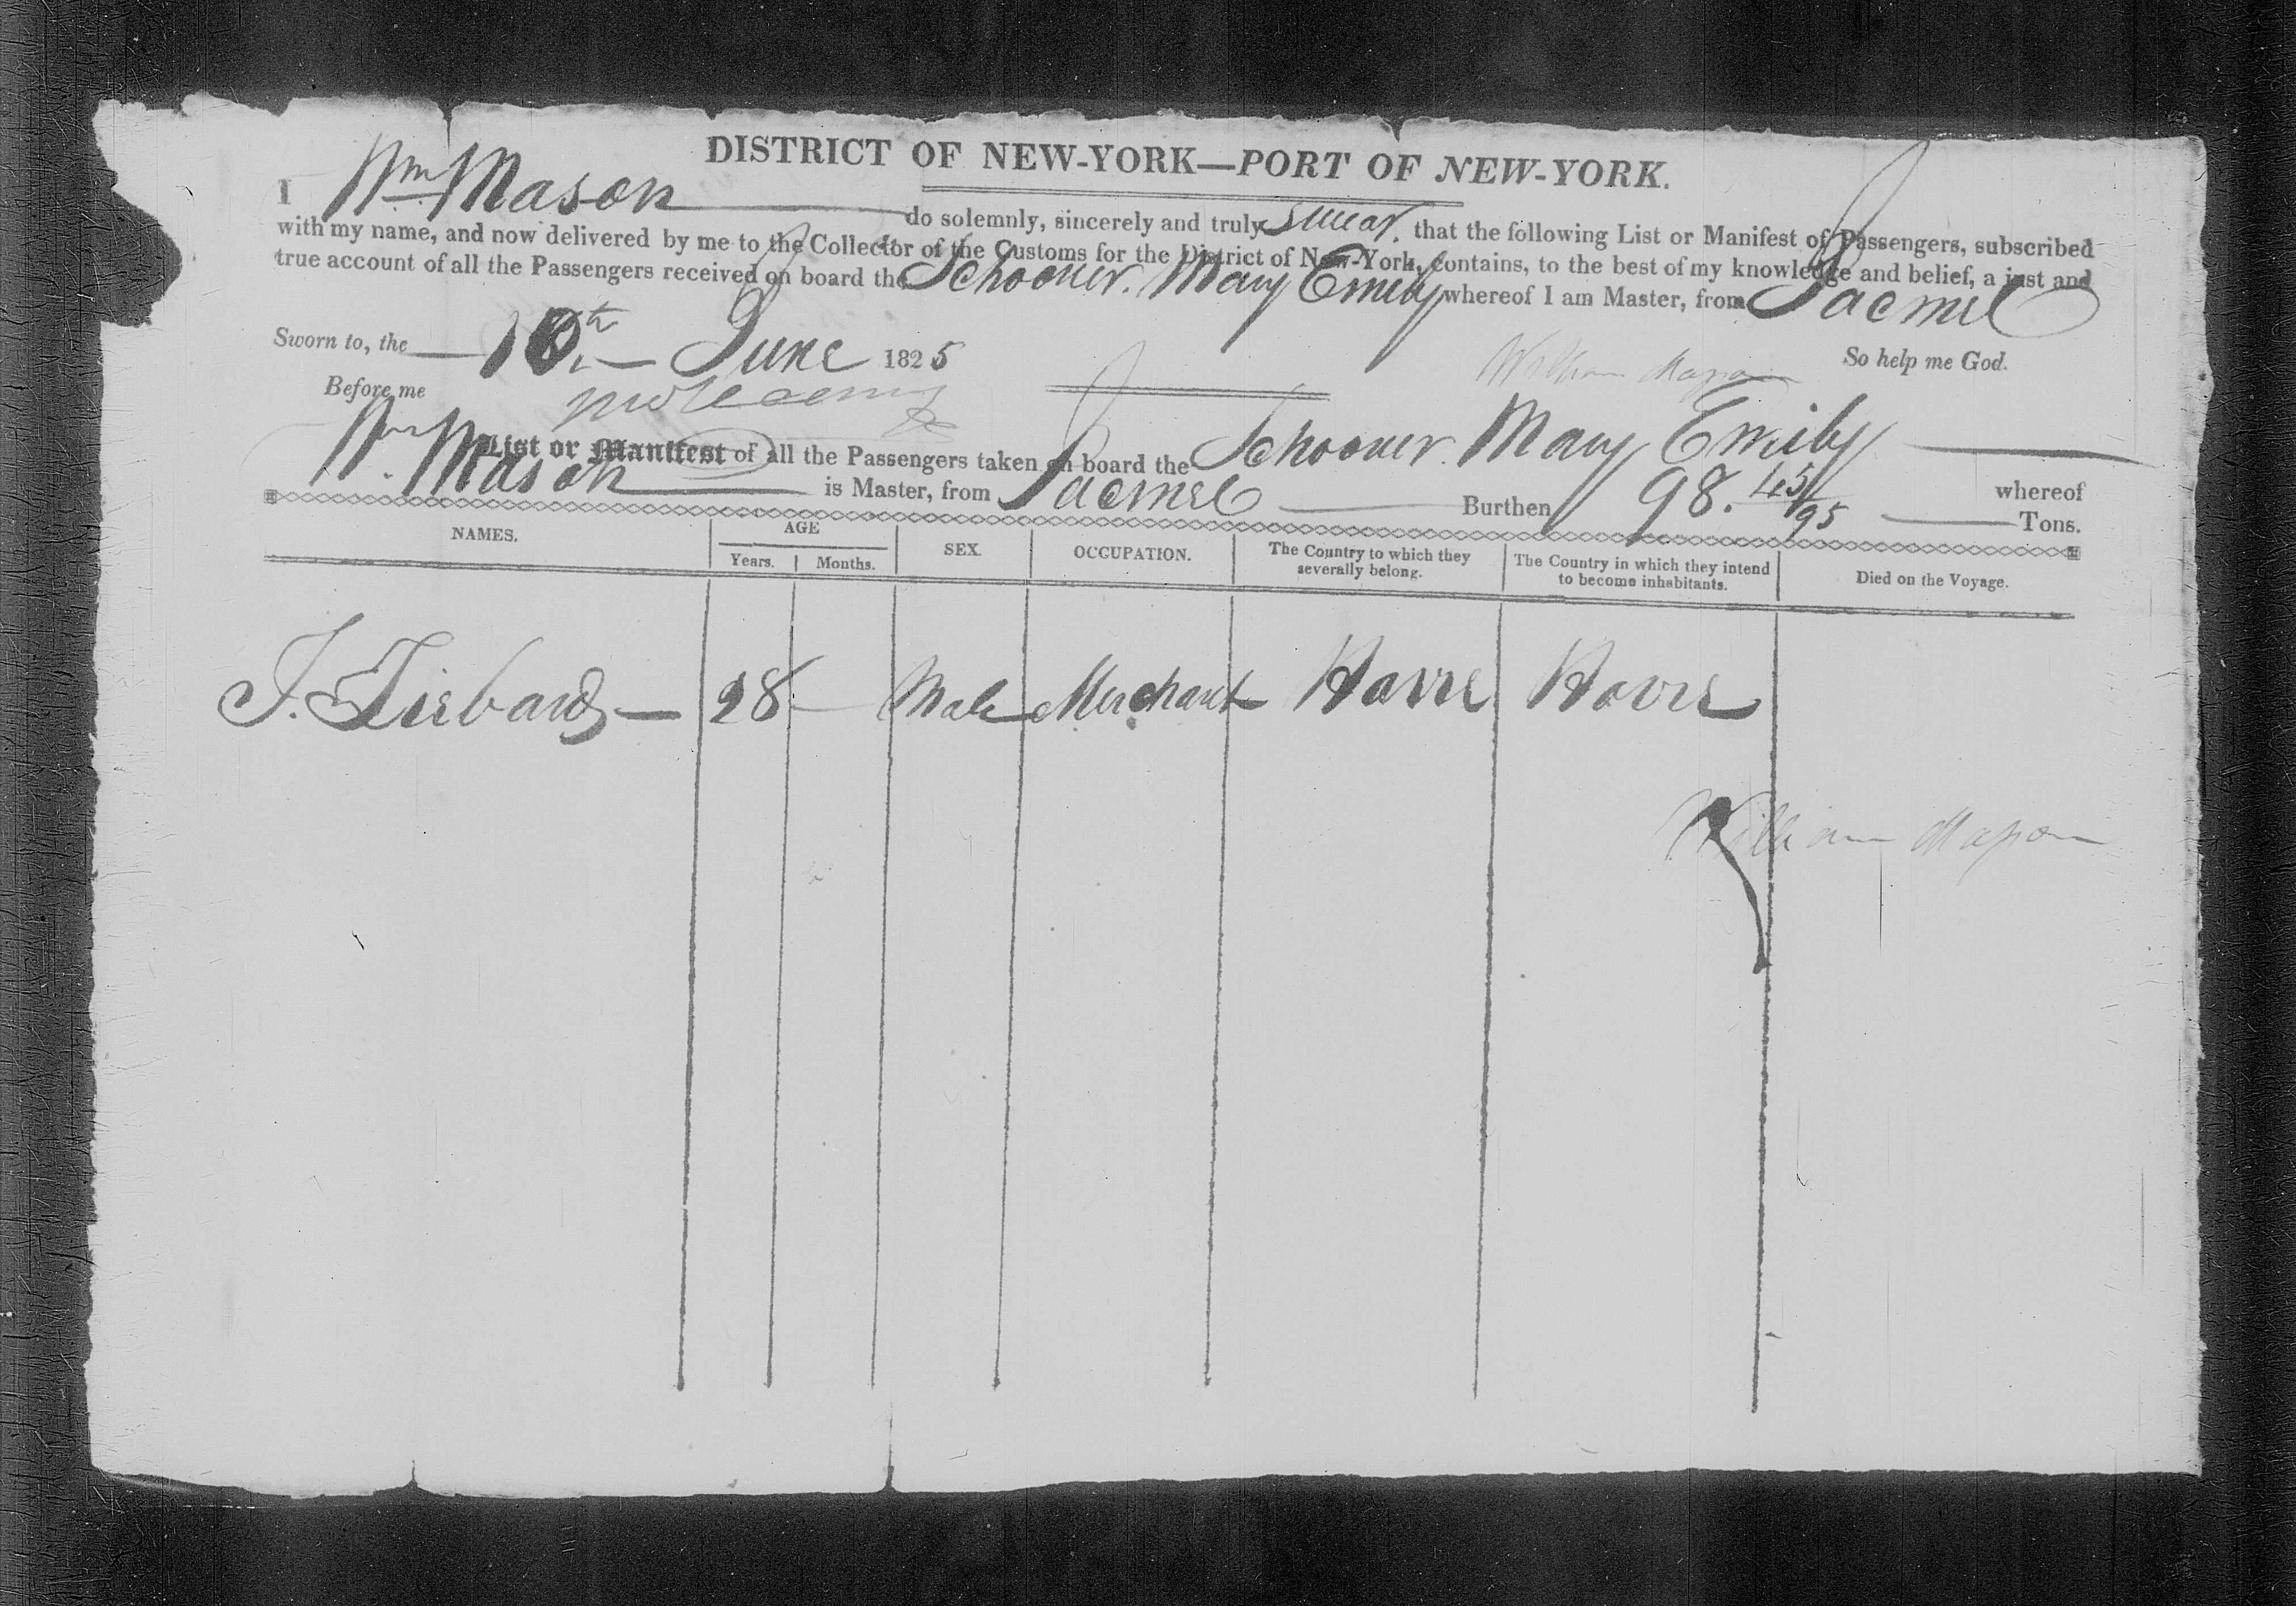 DISTRICT OF NEW-YORK—PORT OF NEW-YORK.
I Wm Mason do solemnly, sincerely and truly swear, that the following List or Manifest of Passengers, subscribed
with my name, and now delivered by me to the Collector of the Customs for the District of New-York, contains, to the best of my knowledge and belief, a just and
true account of all the Passengers received on board the Schooner. Mary Emily whereof I am Master, from Jacmel
Sworn to, the 10th June 1825 So help me God.
Before me William Mason
List or Manifest of all the Passengers taken on board the Schooner. Mary Emily whereof
Wm Mason is Master, from Jacmel Burthen 98. 45/95 Tons.
NAMES. AGE Years. Months. SEX. OCCUPATION. The Country to which they severally belong. The Country in which they intend to become inhabitants. Died on the Voyage.
J. 28 Male Merchant Havre Havre
William Mason